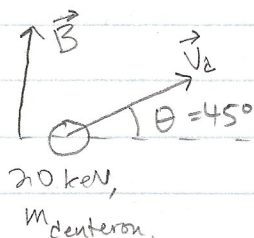 B⃗
V⃗d
θ = 45°
keV,
m deuteron.